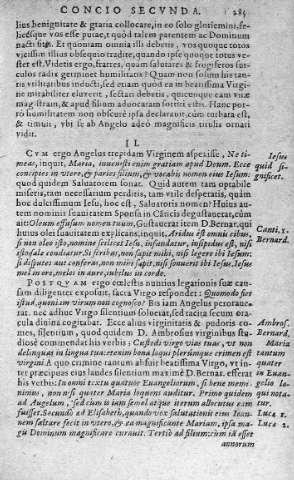 CONCIO SECVNDA. 285
lius benignitate & gratia collocare, in eo solo gloriemini, se-
hęcsque vos esse putate, quòd talem parentem ac Dominum
nacti sitis. Et quoniam omnia illi debetis, vosquoque totos
vicissim illius obsequio tradite, quando ipse quoque totus ve-
ster est. Videtis ergo, fratres, quam salutares & frugiferos fru-
ctus radix germinet humilitatis? Quàm non solùm his tan-
tis vtilitatibus inducti, sed etiam quòd ea in beatissima Virgi-
ne mirabiliter eluxerit, sectari debetis, quicunque eam vitæ
magistram, & apud filium aduocatam sortiri estis. Hanc por-
rò humilitatem non obscurè ipsa declarauit, cùm turbata est,
& timuit, vbi se ab Angelo adeò magnificis titulis ornari
vidit.
I I.
CVM ergo Angelus trepidam Virginem aspexisset, Ne ti-
meas, inquit, Maria, inuenisti enim gratiam apud Deum. Ecce
concipies in vtero, & paries filium, & vocabis nomen eius Iesum:
quod quidem Saluatorem sonat. Quid autem tam optabile
miseris, tam necessarium perditis, tam vtile desperatis, quàm
hoc dulcissimum Iesus, hoc est, Saluatoris nomen? Huius au-
tem nominis suauitatem Sponsa in Canticis degustauerat, cùm
ait: Oleum effusum nomen tuum. Gustauerat item D. Bernar. qui
huius olei suauitatem explicans, inquit: Aridus est omnis cibus,
si non oleo isto, nomine scilicet Iesu, infundatur, insipidus est, nisi
isto sale condiatur. Si scribas, non sapit mihi, nisi legero ibi Iesum:
si disputes aut conferas, non mihi sapit, nisi sonuerit ibi Iesus. Iesus
mel in ore, melos in aure, iubilus in corde.
POSTQVAM ergo cœlestis nuntius legationis suæ cau-
sam diligenter exposuit, sacra Virgo respondet: Quomodo fiet
istud, quoniam virum non cognosco? Bis iam Angelus perorauerat.
nec adhuc Virgo silentium soluerat, sed tacita secum ora-
cula diuina cogitabat. Ecce alius virginitatis & pudoris co-
mes, silentium, quod quidem D. Ambrosius virginibus stu-
diosè commendat his verbis: Custodi virgo vias tuas, vt non
delinquas in lingua tua: etenim bona loqui plerumque crimen est
virginis. A quo crimine tantum abfuit beatissima Virgo, vt in-
ter præcipuas eius laudes silentium maximè D. Bernar. efferat
his verbis: In omni textu quatuor Euangeliorum, si bene memi-
nimus, non nisi quater Maria loquens auditur. Primò quidem
ad Angelum, sed cùm iam semel atque iterum allocutus eam
fuisset. Secundò ad Elisabeth, quando vox salutationis eius Ioan-
nem saltare fecit in vtero, & ea magnificante Mariam, ipsa ma-
gis Dominum magnificare curauit. Tertiò ad filium, cùm iā esset
annorum
Iesus
quid si-
gnificet.
Cant. 1.
Bernard.
Ambros.
Bernard.
Maria
tantum
quater
in Euan-
gelio lo-
quitur.
Luca 1.
Luca 2.